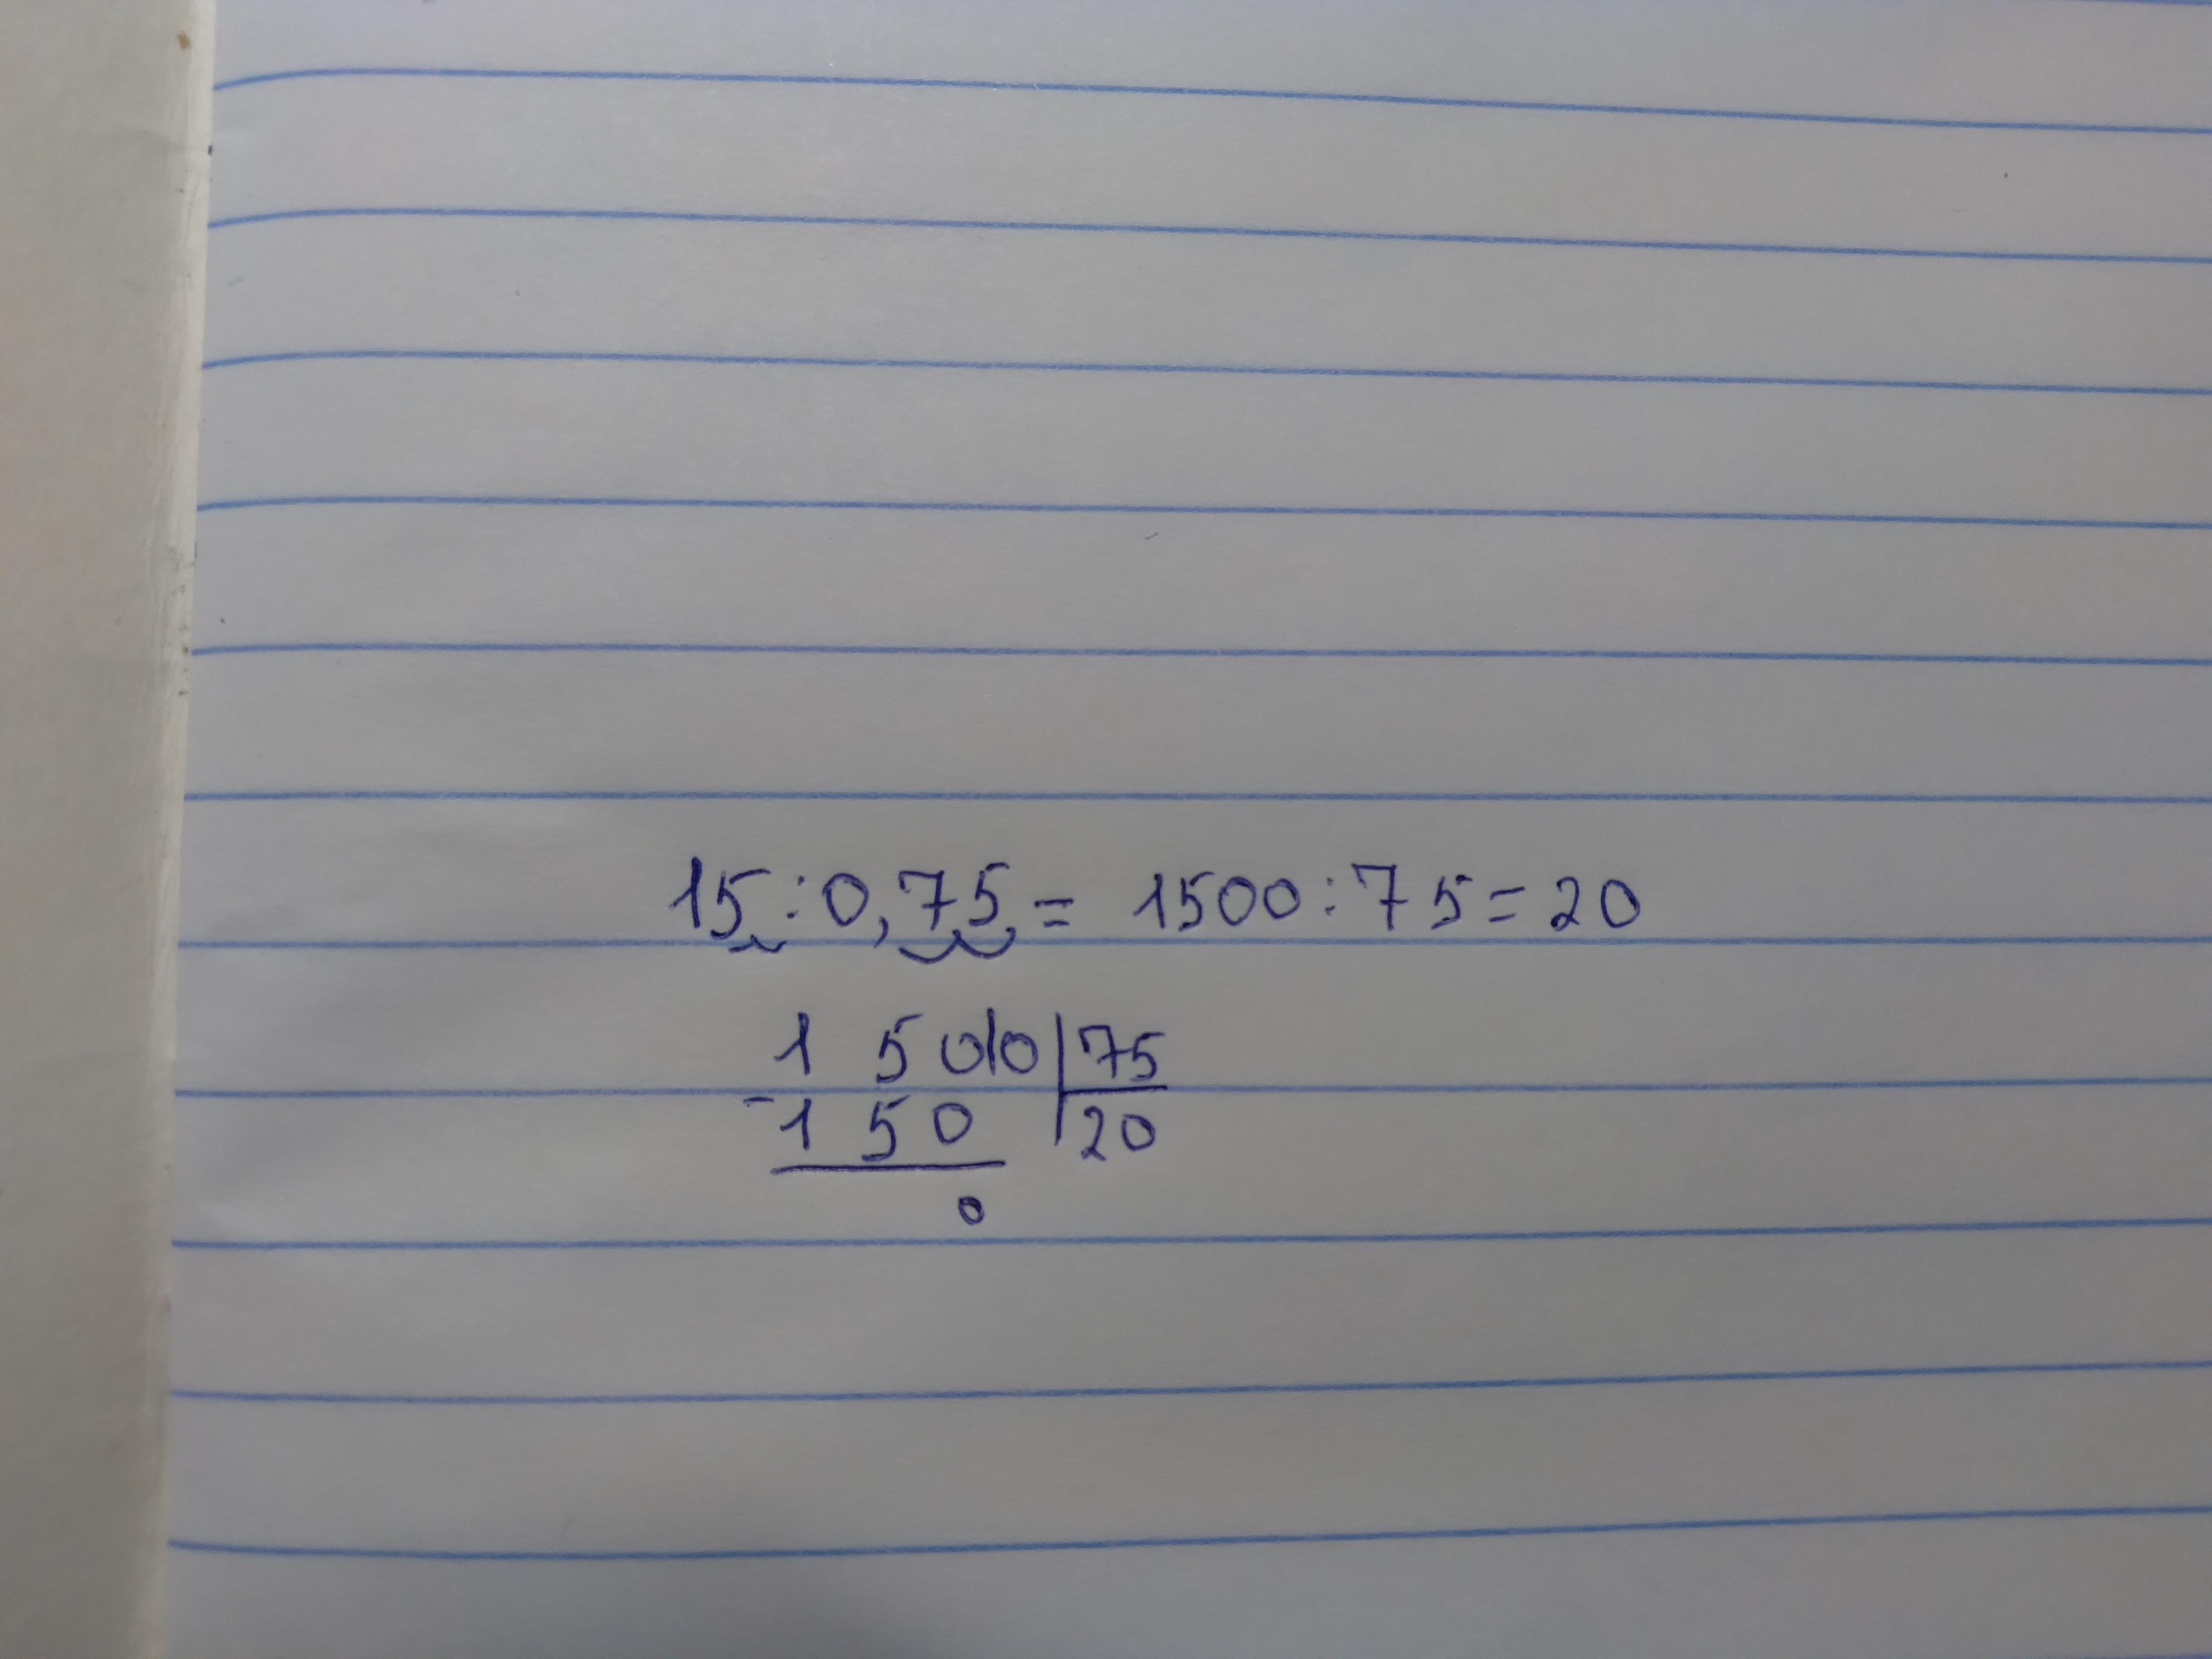 15:0,75= 1500:75=20
1500|75
-150 |20
0